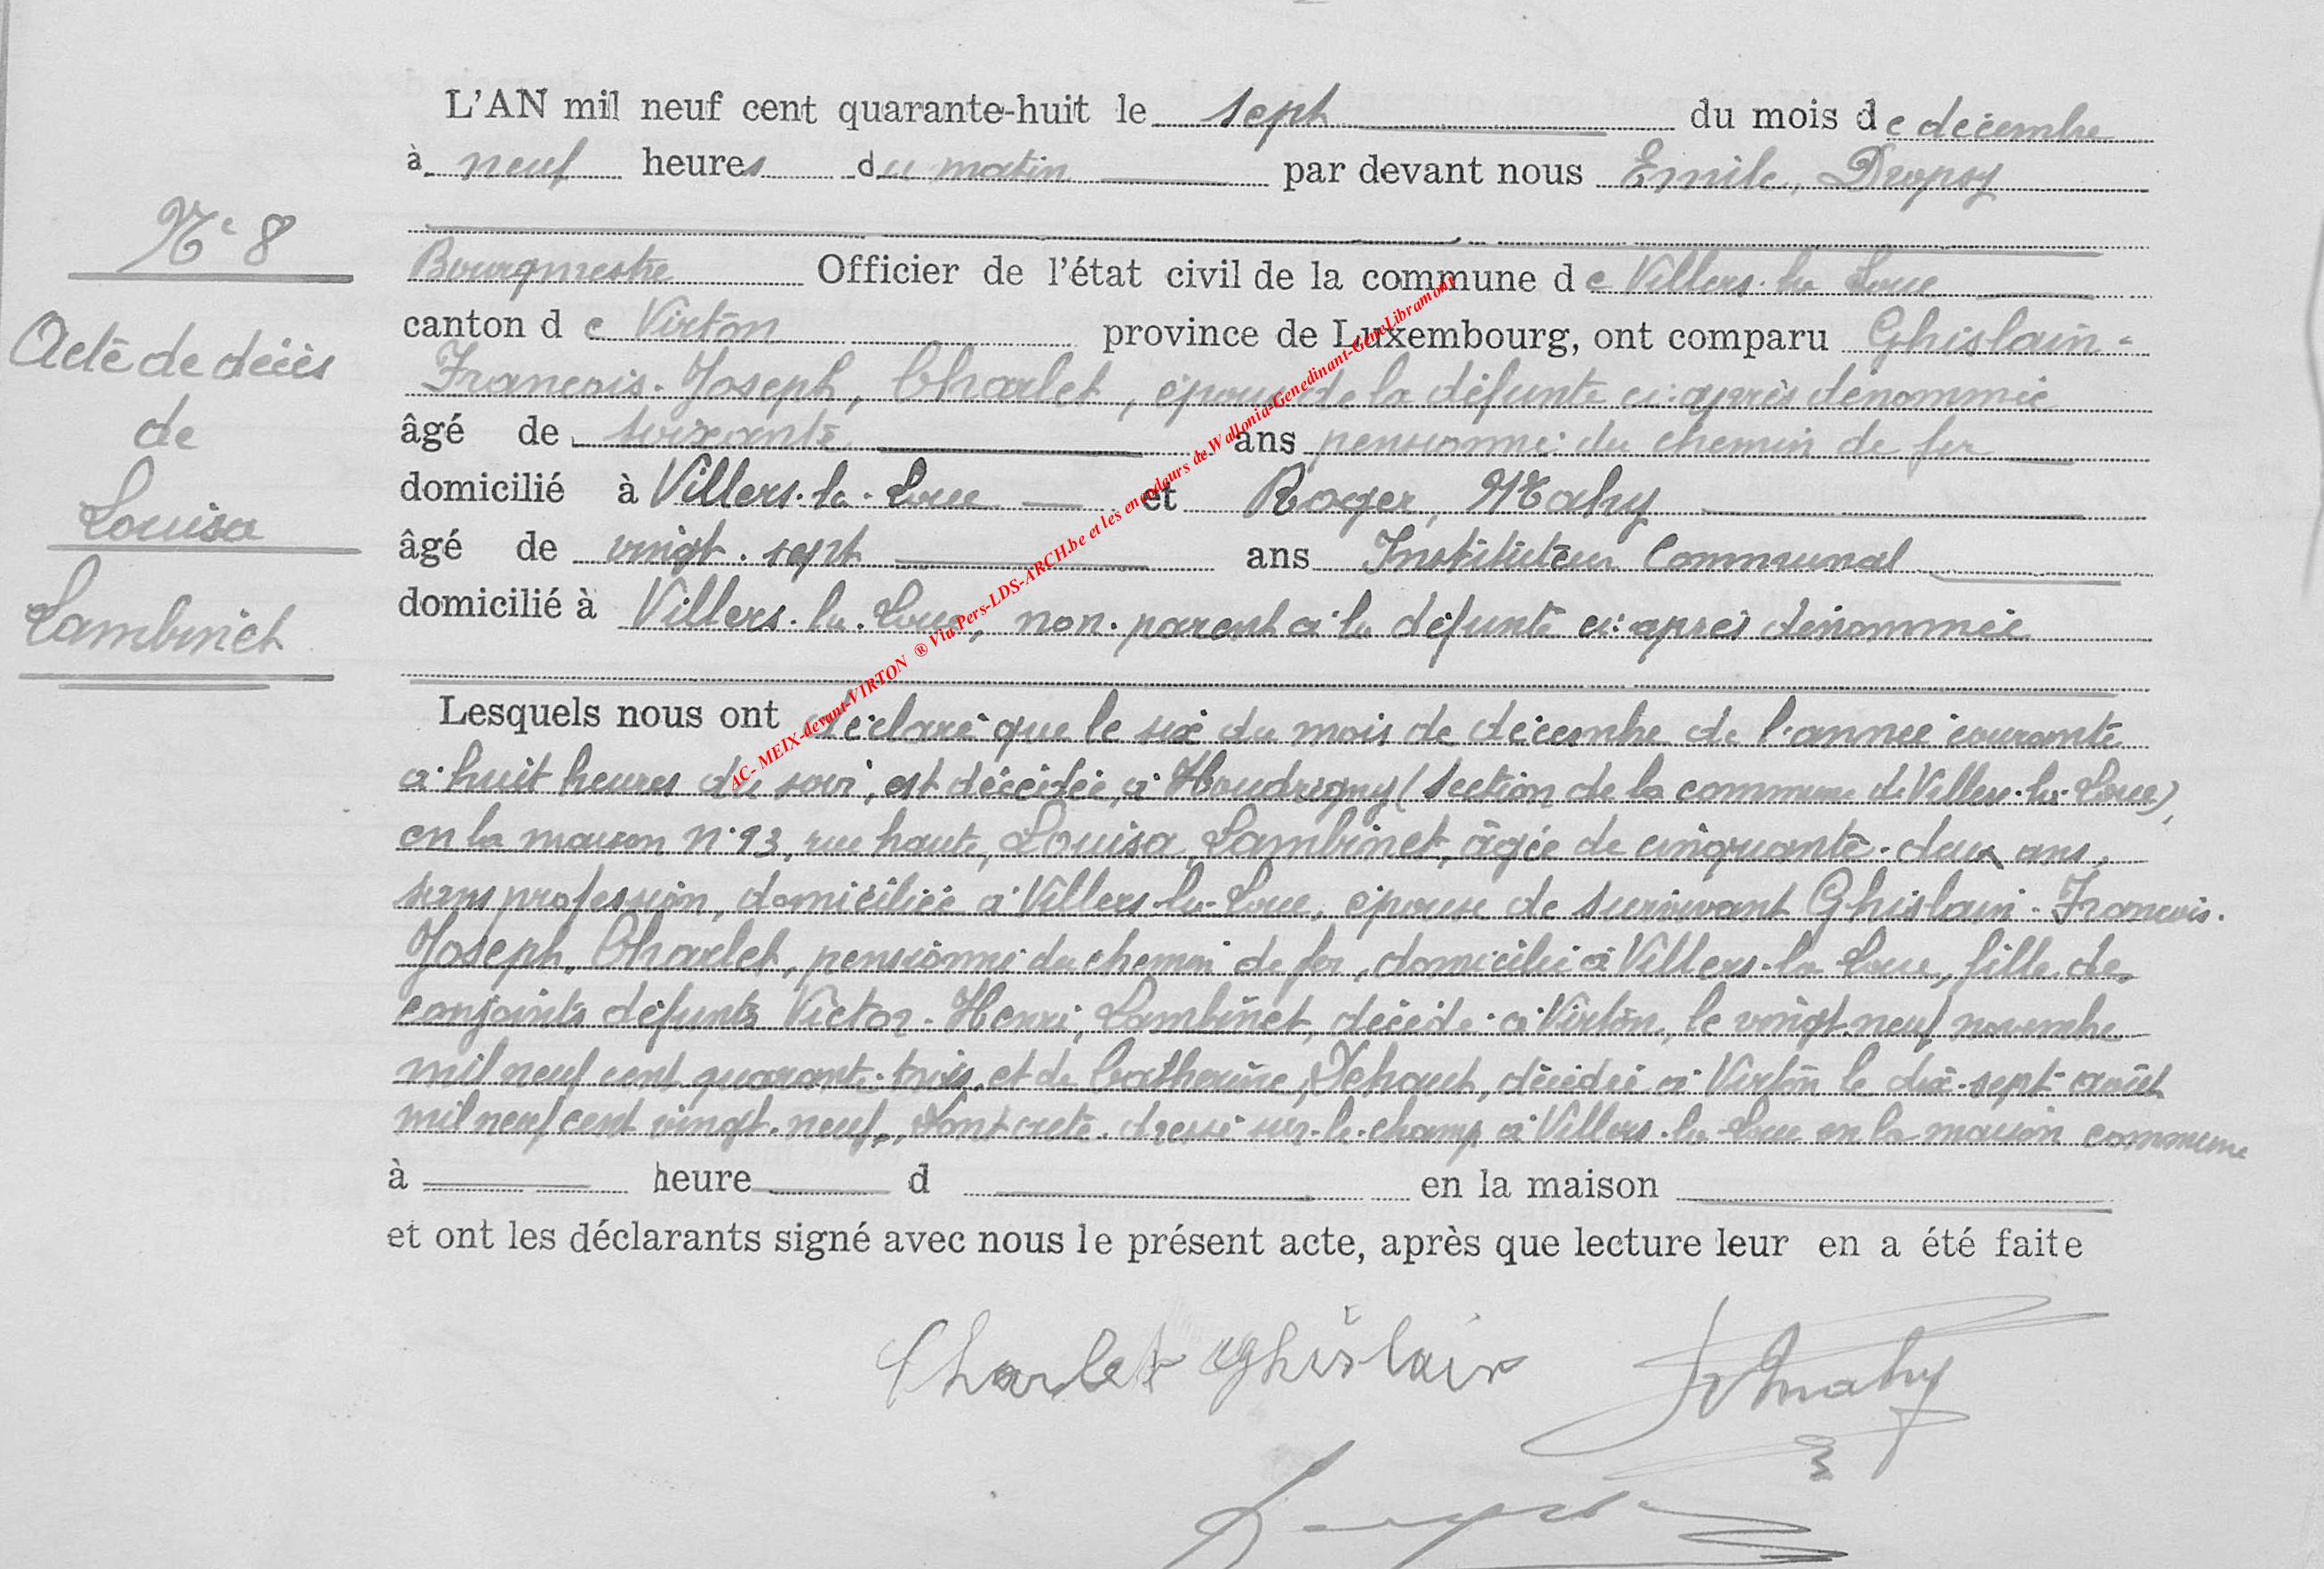 L'AN mil neuf cent quarante-huit le sept du mois de décembre
à neuf heures du matin par devant nous Emile, Dropsy
N° 8
Bourgmestre Officier de l'état civil de la commune de Villers-la-Loue
canton de Virton province de Luxembourg, ont comparu Ghislain-
Acte de décès
François-Joseph, Charlet, époux de la défunte ci-après dénommée
âgé de soixante ans pensionné du chemin de fer
de
domicilié à Villers-la-Loue et Roger, Mahy
Louisa
âgé de vingt-sept ans Instituteur Communal
domicilié à Villers-la-Loue, non-parent à la défunte ci-après dénommée
Lambinet
Lesquels nous ont déclaré que le six du mois de décembre de l'année courante
à huit heures du soir, est décédée, à Houdrigny (section de la commune de Villers-la-Loue),
en la maison n°93, rue haute, Louisa, Lambinet, âgée de cinquante-deux ans,
sans profession, domiciliée à Villers-la-Loue, épouse de survivant Ghislain-François-
Joseph, Charlet, pensionné du chemin de fer, domicilié à Villers-la-Loue, fille de
conjoints défunts Victor-Henri, Lambinet, décédé à Virton, le vingt-neuf novembre
mil neuf cent quarante-trois, et de Catherine, décédée à Virton le dix-sept août
mil neuf cent vingt-neuf, Dont acte dressé sur-le-champ à Villers-la-Loue en la maison commune
à heure d en la maison
et ont les déclarants signé avec nous le présent acte, après que lecture leur en a été faite
Charlet Ghislain RMahy
Dropsy
AC- MEIX-devant-VIRTON ® Via Pers-LDS-ARCH.be et les encodeurs de Wallonia-Genedinant-GeneLibramont